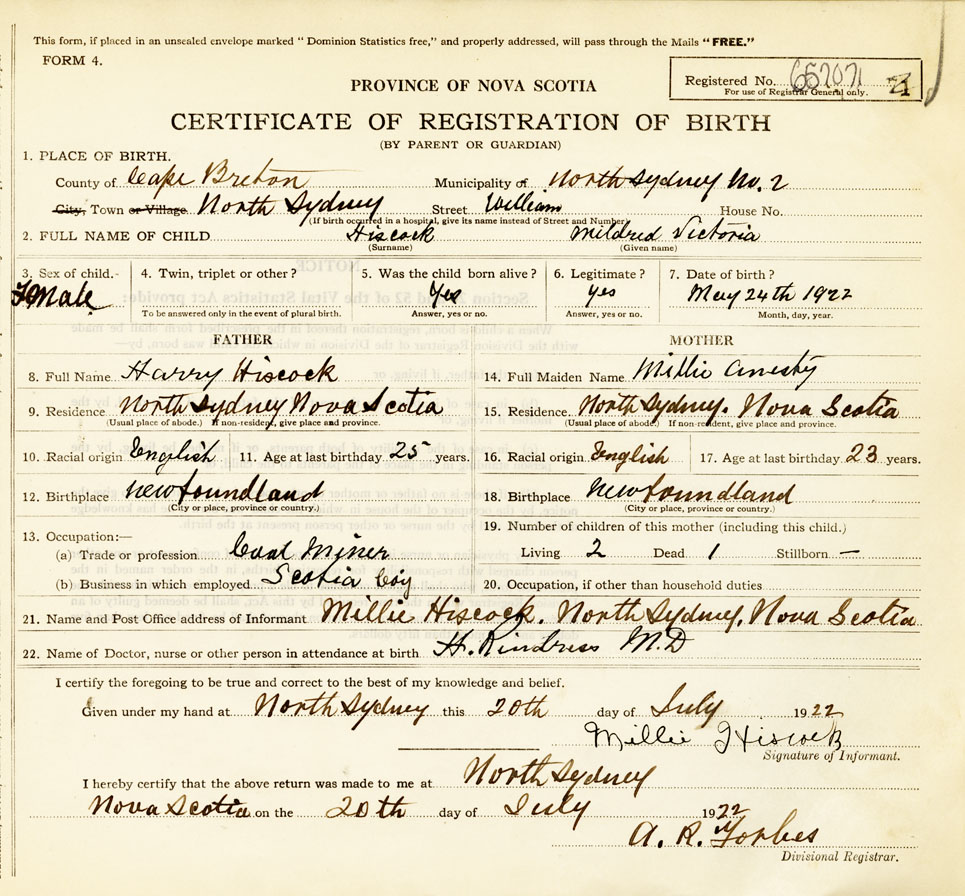 This form, if placed in an unsealed envelope marked “ Dominion Statistics free,” and properly addressed, will pass through the Mails “ FREE.”
FORM 4.
Registered No. 657071
For use of Registrar General only.
PROVINCE OF NOVA SCOTIA
CERTIFICATE OF REGISTRATION OF BIRTH
(BY PARENT OR GUARDIAN)
1. PLACE OF BIRTH.
County of Cape Breton Municipality of North Sydney No. 2
City, Town or Village North Sydney Street William House No.
(If birth occurred in a hospital, give its name instead of Street and Number)
2. FULL NAME OF CHILD Hiscock Mildred Victoria
(Surname) (Given name)
3. Sex of child.- 4. Twin, triplet or other ? 5. Was the child born alive ? 6. Legitimate ? 7. Date of birth ?
FMale Yes Yes May 24th 1922
To be answered only in the event of plural birth. Answer, yes or no. Answer, yes or no. Month, day, year.
FATHER MOTHER
8. Full Name Harry Hiscock 14. Full Maiden Name Millie Anesty
9. Residence North Sydney Nova Scotia 15. Residence North Sydney. Nova Scotia
(Usual place of abode.) If non-resident, give place and province. (Usual place of abode.) If non-resident, give place and province.
10. Racial origin English 11. Age at last birthday 25 years. 16. Racial origin English 17. Age at last birthday 23 years.
12. Birthplace Newfoundland 18. Birthplace Newfoundland
(City or place, province or country.) (City or place, province or country.)
19. Number of children of this mother (including this child.)
13. Occupation:—
(a) Trade or profession Coal Miner Living 2 Dead 1 Stillborn —
(b) Business in which employed Scotia Coy 20. Occupation, if other than household duties
21. Name and Post Office address of Informant Millie Hiscock. North Sydney. Nova Scotia
22. Name of Doctor, nurse or other person in attendance at birth H. M.D
I certify the foregoing to be true and correct to the best of my knowledge and belief.
Given under my hand at North Sydney this 20th day of July 1922
Millie Hiscock
Signature of Informant.
I hereby certify that the above return was made to me at North Sydney
Nova Scotia on the 20th day of July 1922
A. R. Forbes
Divisional Registrar.